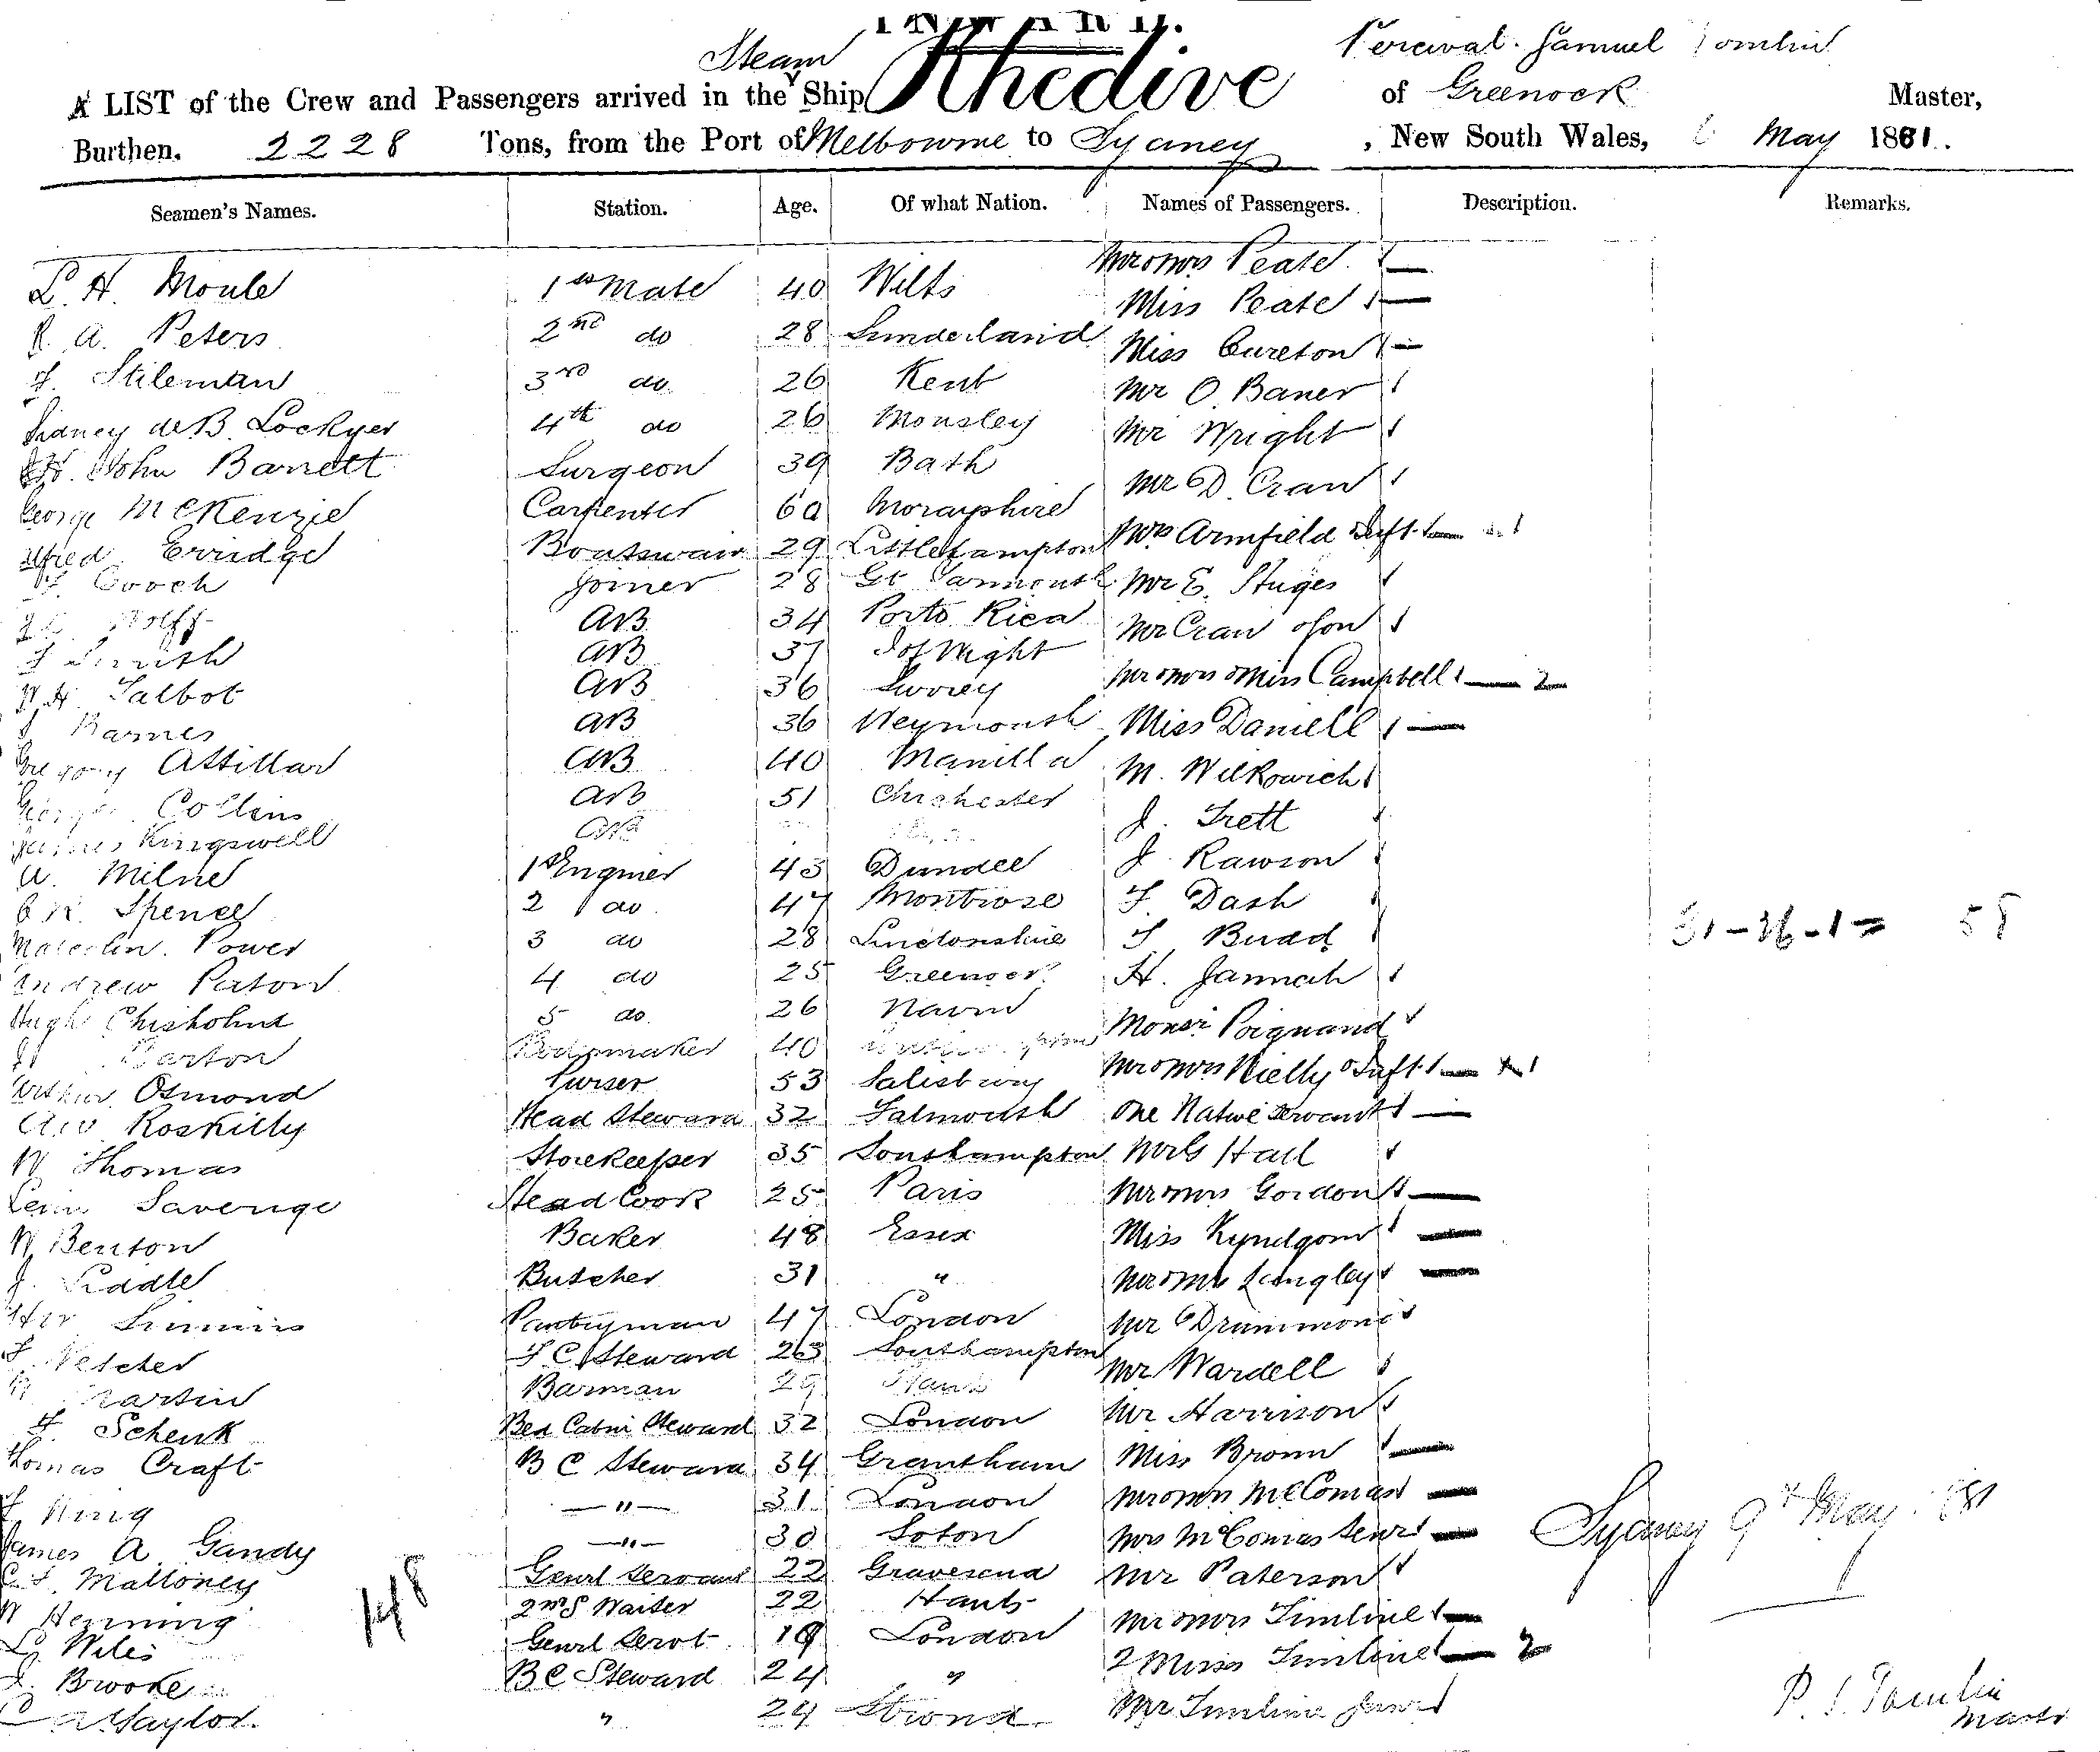 INWARD.
Steam
A LIST of the Crew and Passengers arrived in the Ship Khedive Percival Samuel Tomlin
of Greenock Master,
Burthen, 2228 Tons, from the Port of Melbourne to Sydney, New South Wales, May 1881.
Seamen's Names. Station. Age. Of what Nation. Names of Passengers. Description. Remarks.
L. H. Moule 1st Mate 40 Wilts Mr & Mrs Peate
R. A. Peters 2nd do 28 Sunderland Miss Peate
F. Stileman 3rd do 26 Kent Miss Cureton
Sidney de B. Lockyer 4th do 26 Mousley Mr O. Baner
John Barrett Surgeon 39 Bath Mr Wright
George McKenzie Carpenter 60 Morayshire Mr D. Cran
Alfred Erridge Boatswain 29 Littlehampton Mrs Armfield & Inft
Gooch Joiner 28 Gt Yarmouth Mr E. Stuges
Wolff AB 34 Porto Rica Mr Cran & Son
J Smith AB 37 I of Wight
W. H. Talbot AB 36 Surrey Mr & Mrs & Miss Campbell 2
J Barnes AB 36 Weymouth Miss Daniell
Gregory Attillar AB 40 Manilla M. Wilkowich
George Collins AB 51 Chichester J. Trett
James Kingswell AB
A. Milne 1st Engnier 43 Dundee J. Rawson
Spence 2 do 47 Montrose F. Dash
Malcolm Power 3 do 28 Linctonshire F Budd 31-26-1= 58
Andrew Paton 4 do 25 Greenock H. Jannah
Hugh Chisholm 5 do 26 Nairn Monsr Poignand
Barton Boilermaker 40
Arthur Osmond Purser 53 Salisbury Mr & Mrs Nielly & Inft 1
Roskilly Head Steward 32 Falmouth One Native Servant
W Thomas Storekeeper 35 Southampton Hall
Saverige Head Cook 25 Paris Mr & Mrs Gordon
W Benton Baker 48 Essex Miss Kyndgom
J. Piddle Butcher 31 " Mr & Mrs Langley
Simmins Pantryman 47 London Mr Drummond
F. Netcher F C Steward 23 Southampton Mr Wardell
Martin Barman 29 Hants
F. Schenk Bed Cabin Steward 32 London Mr Harrison
Thomas Craft B C Steward 34 Grantham Miss Brown
F King — " — 31 London Mr & Mrs McComas
James A Gandy — " — 30 Soton Mrs McComas Senr Sydney 9th May 1881
Malloney Genrl Servant 22 Gravesend Mr Paterson
148
W Henning 2nd S Waiter 22 Hants Mr & Mrs Timline
Wiles Genrl Servt 19 London 2 Misses Timline 2
J. Brooke B C Steward 24 " P. S. Tomlin
Taylor " 24 Strond Mr Timline Junr Master